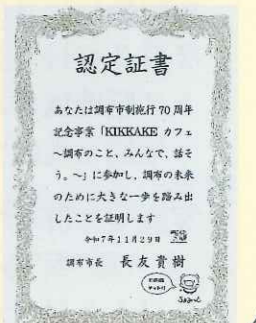 認定証書
あなたは調布市制施行70周年
記念事業「KIKKAKE カフェ
～調布のこと、みんなで、話そ
う。～」に参加し、調布の未来
のために大きな一歩を踏み出
したことを証明します
令和7年11月29日
調布市長 長友貴樹